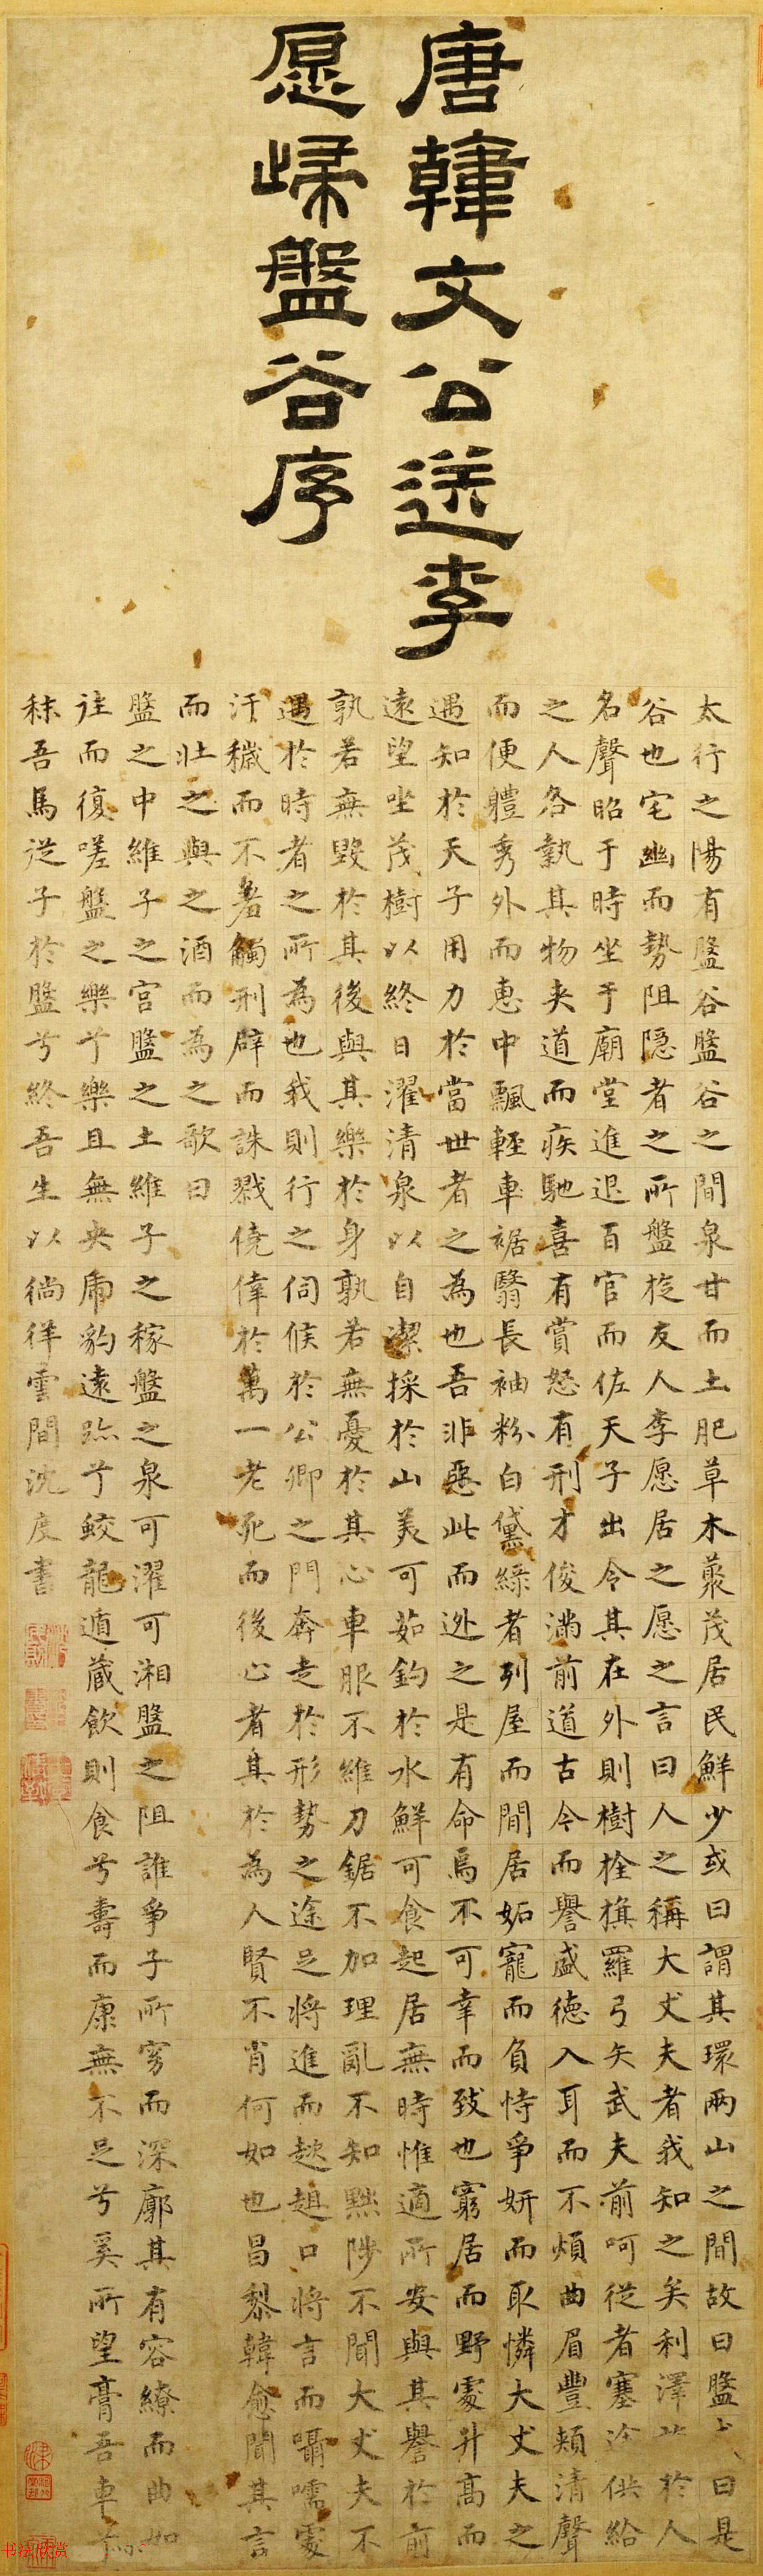 唐韓文公送李
愿歸盤谷序
太行之陽有盤谷盤谷之間泉甘而土肥草木藂茂居民鮮少或曰謂其環兩山之間故曰盤曰是
谷也宅幽而勢阻隱者之所盤旋友人李愿居之愿之言曰人之稱大丈夫者我知之矣利澤於人
名聲昭于時坐于廟堂進退百官而佐天子出令其在外則樹栓旗羅弓矢武夫前呵從者塞途供給
之人各執其物夾道而疾馳喜有賞怒有刑才俊滿前道古今而譽盛德入耳而不煩曲眉豐頰清聲
而便體秀外而惠中飄輕車裾翳長袖粉白黛綠者列屋而間居妬寵而負恃爭妍而取憐大丈夫之
遇知於天子用力於當世者之為也吾非惡此而逃之是有命焉不可幸而致也窮居而野處升高而
遠望坐茂樹以終日濯清泉以自潔採於山美可茹釣於水鮮可食起居無時惟適所安與其譽於前
孰若無毀於其後與其樂於身孰若無憂於其心車服不維刀鋸不加理亂不知黜陟不聞大丈夫不
遇於時者之所為也我則行之伺候於公卿之門奔走於形勢之途足將進而趑趄口將言而囁嚅處
汙穢而不羞觸刑辟而誅戮僥倖於萬一老死而後止者其於為人賢不肖何如也昌黎韓愈聞其言
而壯之與之酒而為之歌曰
盤之中維子之宮盤之土維子之稼盤之泉可濯可湘盤之阻誰爭子所窈而深廓其有容繚而曲如
往而復嗟盤之樂兮樂且無央虎豹遠跡兮蛟龍遁藏飲則食兮壽而康無不足兮奚所望膏吾車兮
秣吾馬從子於盤兮終吾生以徜徉雲間沈度書
书法欣赏